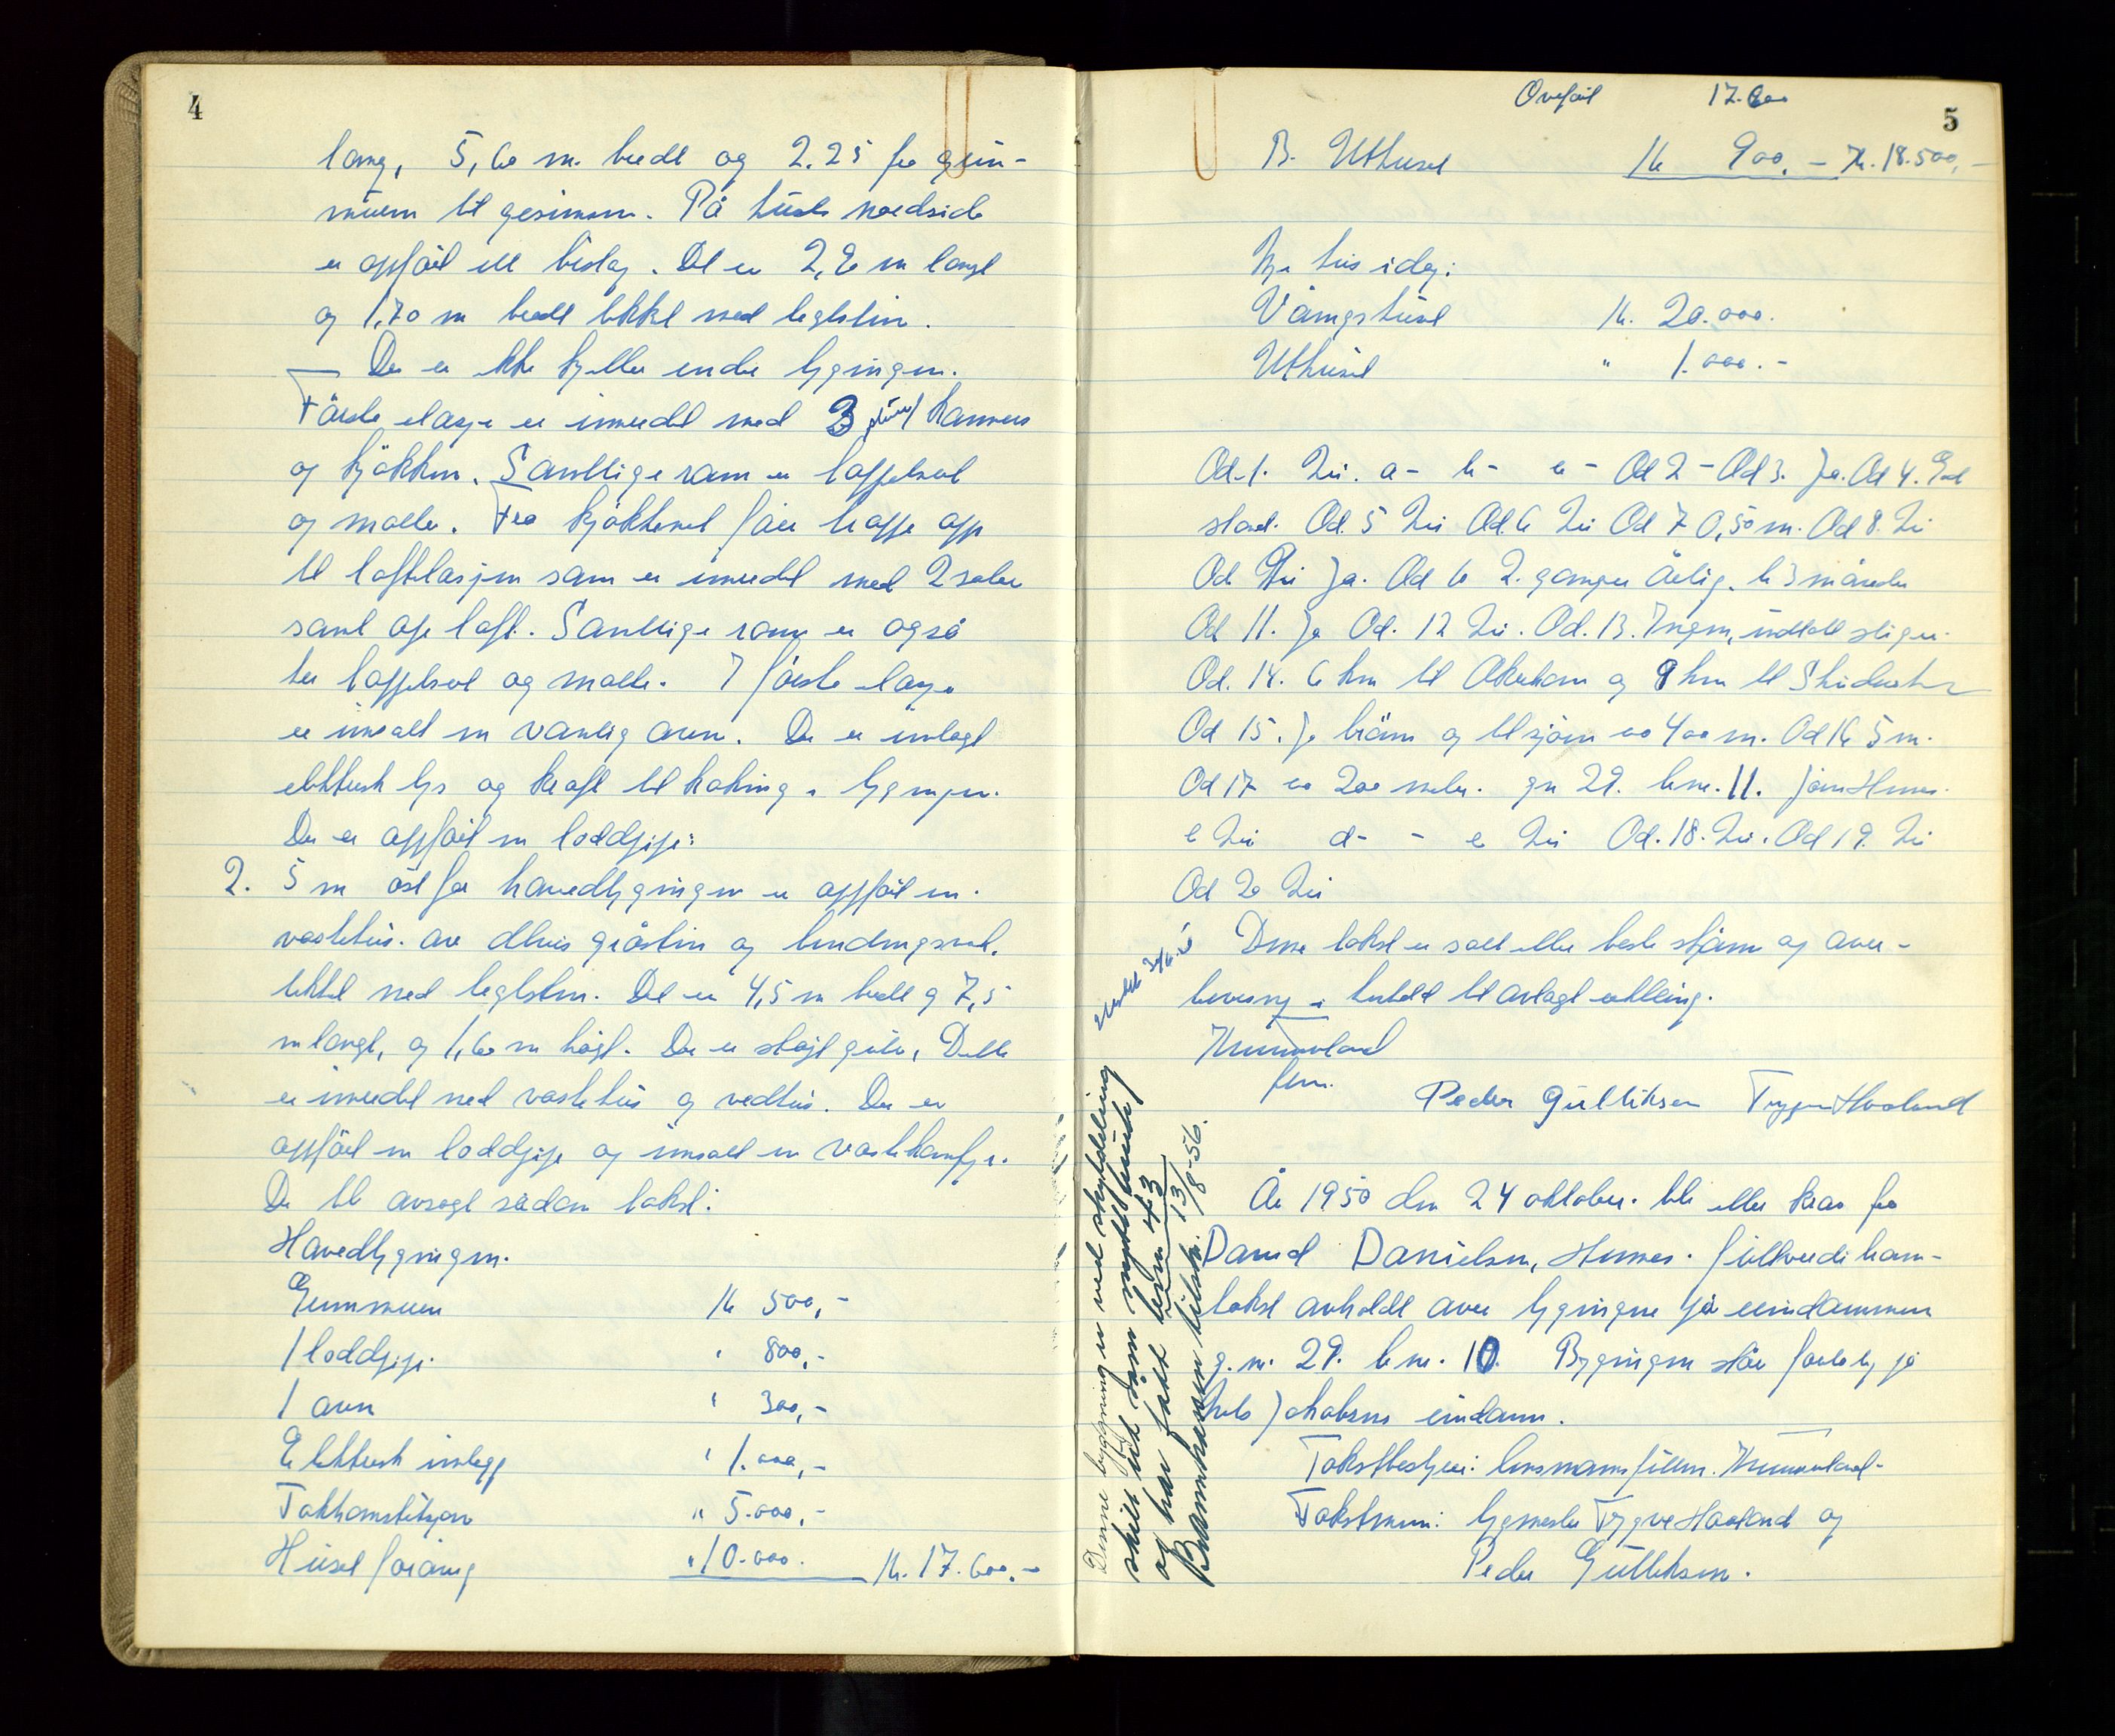 4
lang, 5,60 m. bredt og 2.25 fra grun-
muren til gesimsen. På husets nordside
er oppført ett bislag. Det er 2,20 m langt
og 1,70 m bredt tekket med teglstein.
— Der er ikke kjeller under bygningen.
Første etasje er innredet med 3 stuer kammers
og kjøkken. Samtlige rom er taffelsert
og malte. Fra kjøkkenet fører trappe opp
til loftetasjen som er innredet med 2 saler
samt ope loft. Samtlige rom er også
her taffelsert og malte. I første etasje
er innsatt en vanlig ovn. Der er innlagt
elektrisk lys og kraft til koking i bygningen.
Der er oppført en loddpipe.
2. 5 m øst for hovedbygningen er oppført en
vaskehus. av delvis gråstein og bindingsverk.
tekket med teglstein. Det er 4,5 m bredt og 7,5
m langt, og 1,60 m høgt. Der er støpt gulv, Dette
er innredet med vaskehus og vedhus. Der er
oppført en loddpipe og innsatt en vaskekomfyr.
De ble avsagt sådan takst:
Hovedbygningen.
Grunnmuren kr 500,-
1 loddpipe. " 800,-
1 ovn " 300,-
Elektrisk innlegg " 1.000,-
Takkonstruksjon " 5.000,-
Huset forøvrig " 10.000. kr. 17.600.-
5
Overført 17.600
B. Uthuset kr 900.- Kr. 18.500,-
Nye hus idag:
Våningshuset kr. 20.000.
Uthuset " 1.000.-
Ad. 1. Nei. a- b- c- Ad 2 - Ad 3. Ja. Ad 4. God
stand. Ad. 5 Nei Ad. 6 Nei Ad 7 0,50 m. Ad 8. Nei
Ad 9 Ja. Ad 10 2. ganger årlig. b 3 måneder
Ad 11. Ja Ad. 12 Nei. Ad. 13. Ingen, inntatt stiger.
Ad. 14. 6 km til Åkrehavn og 9 km til
Ad 15. Ja brønn og til sjøen ca 400 m. Ad 16 5 m.
Ad 17 ca 200 meter. gn 29. bnr. 11.
c Nei d- - e Nei Ad. 18. Nei. Ad 19. Nei
Ad 20 Nei
Denne takst er satt etter beste skjønn og over-
bevisning i henhold til avlagt erklæring.
fm.
Peder Gulliksen Trygve Haaland
År 1950 den 24 oktober. ble etter krav fra
David Danielsen, Hemnes. fullverdi bran-
takst avholdt over bygningene på eiendommen
g.nr. 29. b nr. 10. Bygningen står foreløbig på
Nels Jakobsens eiendom.
Takstbestyrer: lensmannsfullm.
Takstmenn: bygmester Trygve Haaland og
Peder Gulliksen.
Denne bygning er ved skyldeling
skilt ut som nytt bruk
og har fått bnr 43
Brannkassen tilskr. 13/8-56.